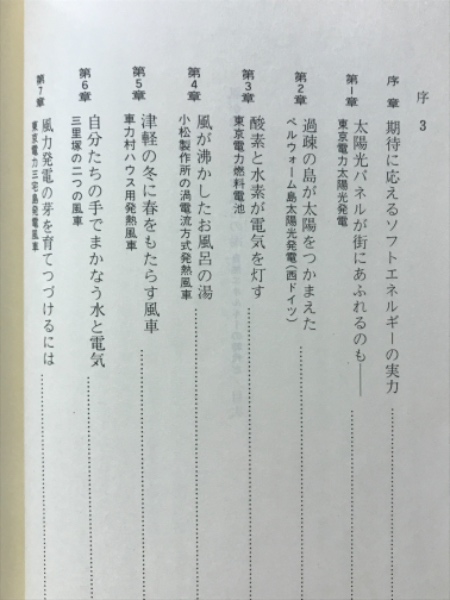 序 3
序章 期待に応えるソフトエネルギーの実力
第1章 太陽光パネルが街にあふれるのも――
東京電力太陽光発電
第2章 過疎の島が太陽をつかまえた
ペルウォーム島太陽光発電(西ドイツ)
第3章 酸素と水素が電気を灯す
東京電力燃料電池
第4章 風が沸かしたお風呂の湯
小松製作所の渦電流方式発熱風車
第5章 津軽の冬に春をもたらす風車
車力村ハウス用発熱風車
第6章 自分たちの手でまかなう水と電気
三里塚の二つの風車
第7章 風力発電の芽を育てつづけるには
東京電力三宅島発電風車